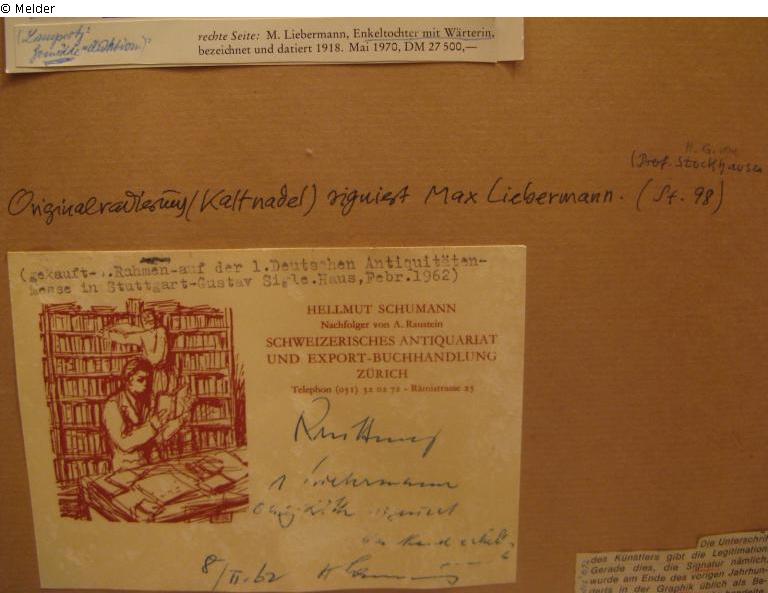 © Melder
(Lempertz
Gemälde-Auktion)
rechte Seite: M. Liebermann, Enkeltochter mit Wärterin,
bezeichnet und datiert 1918. Mai 1970, DM 27 500,—
H. G. von
(Prof. Stockhausen
Originalradierung/(Kaltnadel) signiert Max Liebermann. (St. 98)
(gekauft- .Rahmen-auf der 1.Deutschen Antiquitäten-
messe in Stuttgart-Gustav Sigle.Haus,Febr.1962)
HELLMUT SCHUMANN
Nachfolger von A. Raustein
SCHWEIZERISCHES ANTIQUARIAT
UND EXPORT-BUCHHANDLUNG
ZÜRICH
Telephon (051) 32 02 72 - Rämistrasse 25
Quittung
1 Liebermann
signiert
8/II.62
Die Unterschrif
des Künstlers gibt die Legitimation
Gerade dies, die Signatur nämlich,
wurde am Ende des vorigen Jahrhun-
derts in der Graphik üblich als Be-